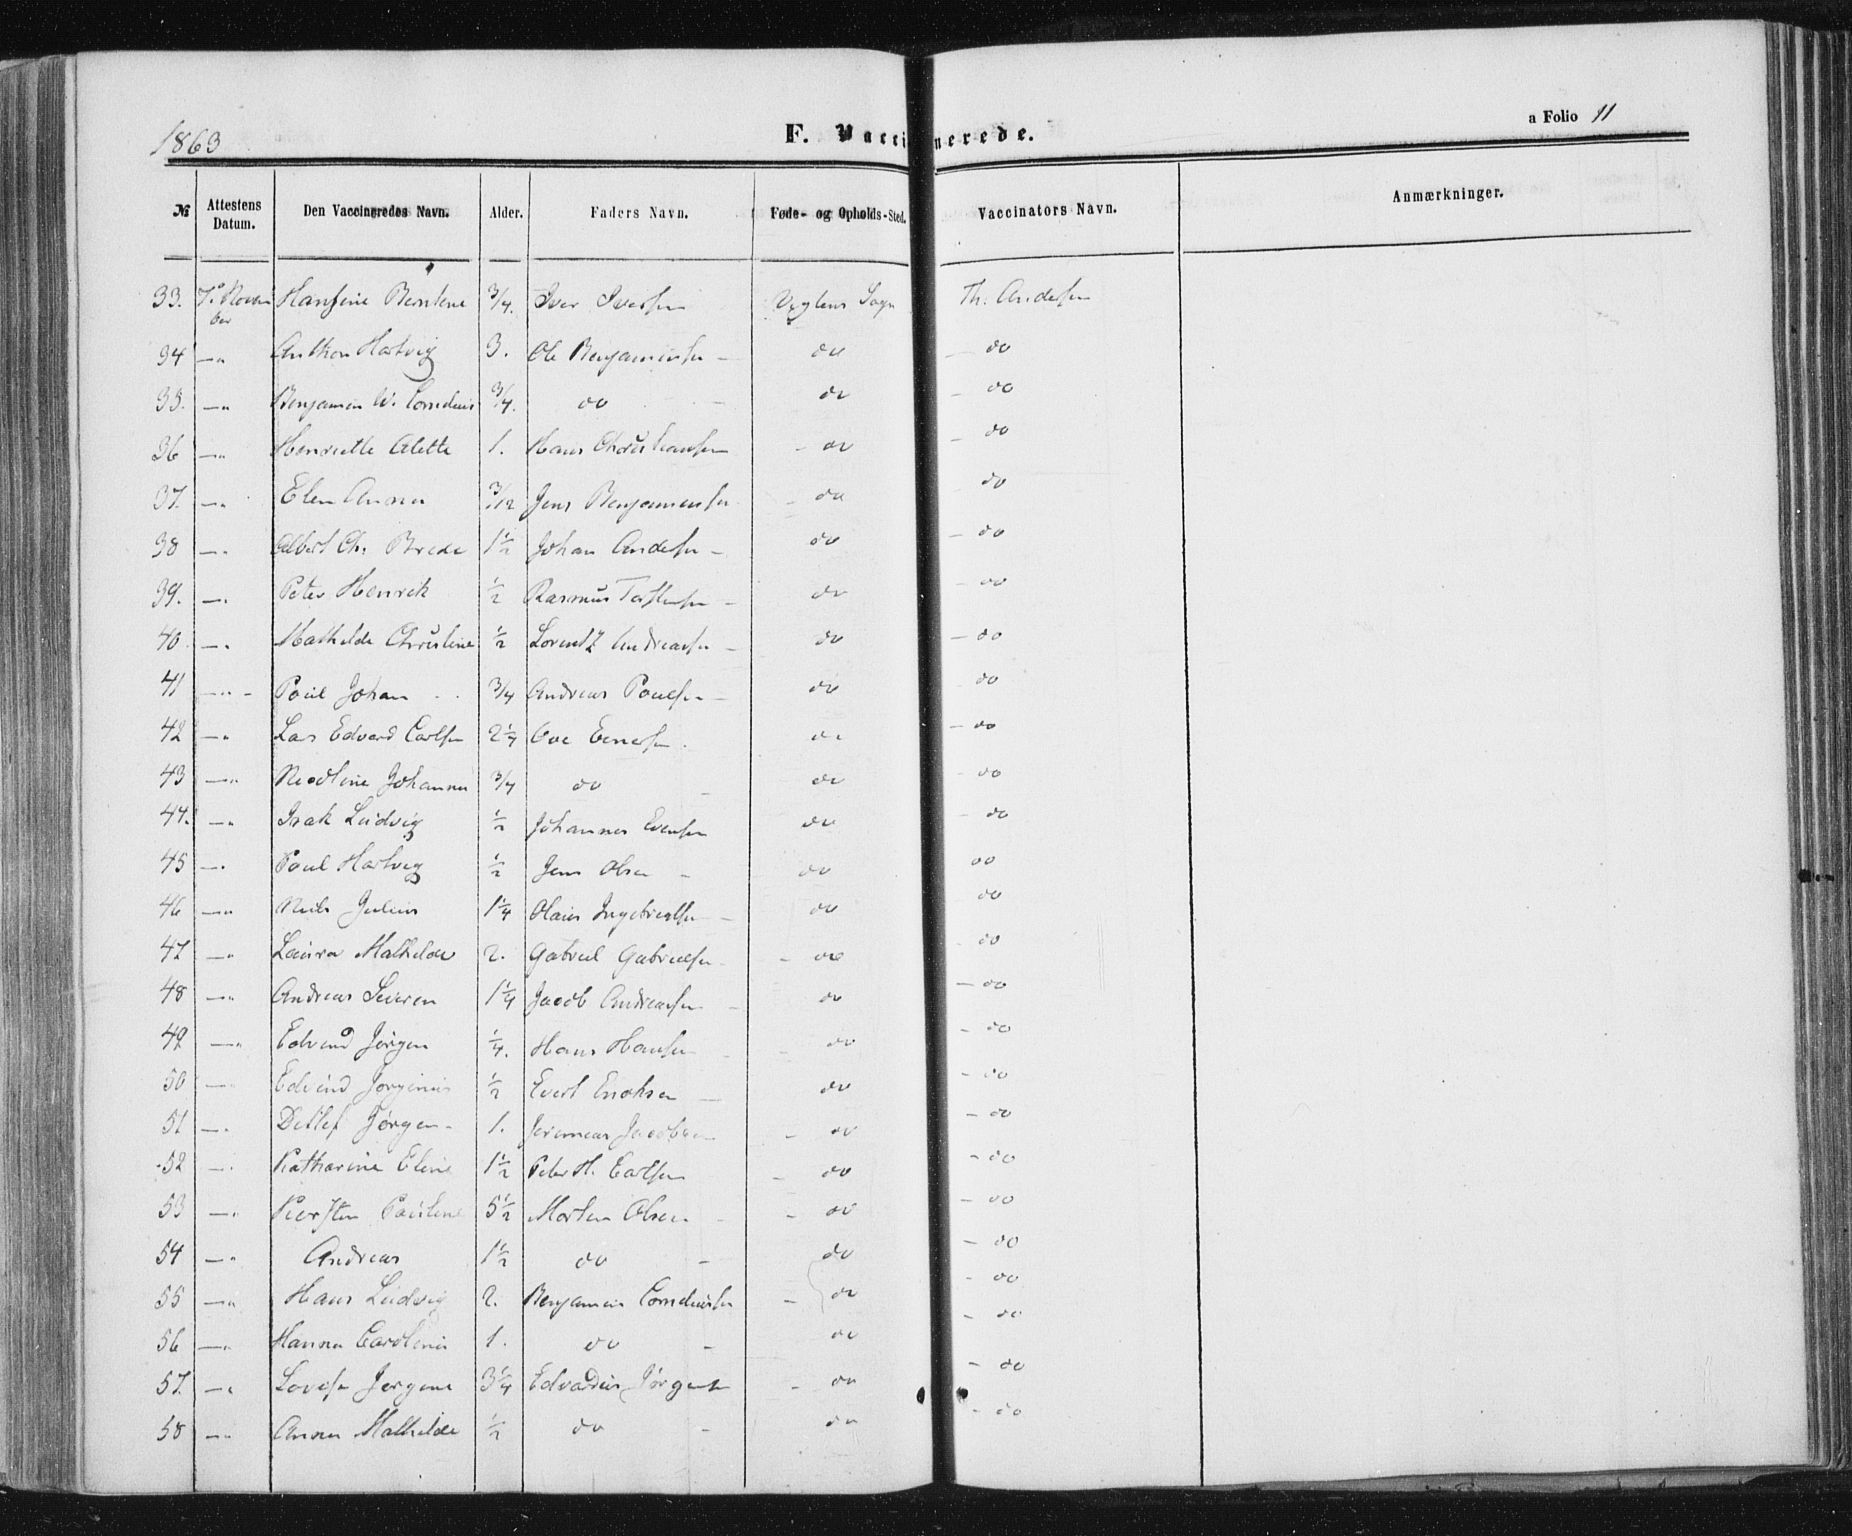 1863 F. Vaccinerede. a Folio 11
№ Attestens Datum. Den Vaccineredes Navn. Alder. Faders Navn. Føde- og Opholds-Sted. Vaccinators Navn. Anmærkninger.
33. 7 Novem ber Hansine Berntine 3/4. Iver Iversen Sogn Th. Andersen
34 — " Anthon Hartvig 3. Ole Benjaminsen — do — do
35. — " Benjamin W. Cornelius 3/4. do — do — do
36 — " Henriette Alette 1. Hans Christiansen - do — do
37. — " Elen Anna 3/12 Jens Benjaminsen - do do
38 — " Albert Chr. Brede 1 1/2 Johan Andersen — do — do
39. — " Peter Henrik 1/2 Rasmus Torstensen — do — do
40 — " Mathilde Christine 1/2 Lorentz Andreasen — do — do
41 — " - Poul Johan 3/4 Andreas Poulsen — do - do
42 — " Lars Edvard Carlsen 2 1/4 Ove do — do
43 — " Johanna 3/4 do — do - do
44. — " Isak Ludvig 1/2 Johannes Evensen do - do
45 — " Poul Hartvig 1/2 Jens Olsen - do do
46 — " Niels Julius 1 1/4 Hans Ingebrigtsen — do - do
47 — " Laura Mathilde 2. Gabriel Gabrielsen - do - do
48 — " Andreas Severin 1 1/4 Jacob Andreasen — do — do
49 — " Edvind Jørgen 1/4. Hans Hansen - do — do
50 — " Edvind Jørginus 1/2 Evert Enoksen — do — do
51 — " Detlef Jørgen - 1. Jeremias Jacobsen - do - do
52 — " Katharina Eline 1 1/2 Peter H. Carlsen - do - do
53 — " Kiersten Pauline 5 1/2 Morten Olsen - do - do
54 — " Andreas 1 1/2 do — do - do
55 — " Hans Ludvig 2. Benjamin Corneliussen - do - do
56 — " Hanna Carolina 1. do - do - do
57. — " Lovise Jørgine 3 1/4 Edvardus Jørgensen - do - do
58 — " Anna Mathilde 1/2 do - do - do